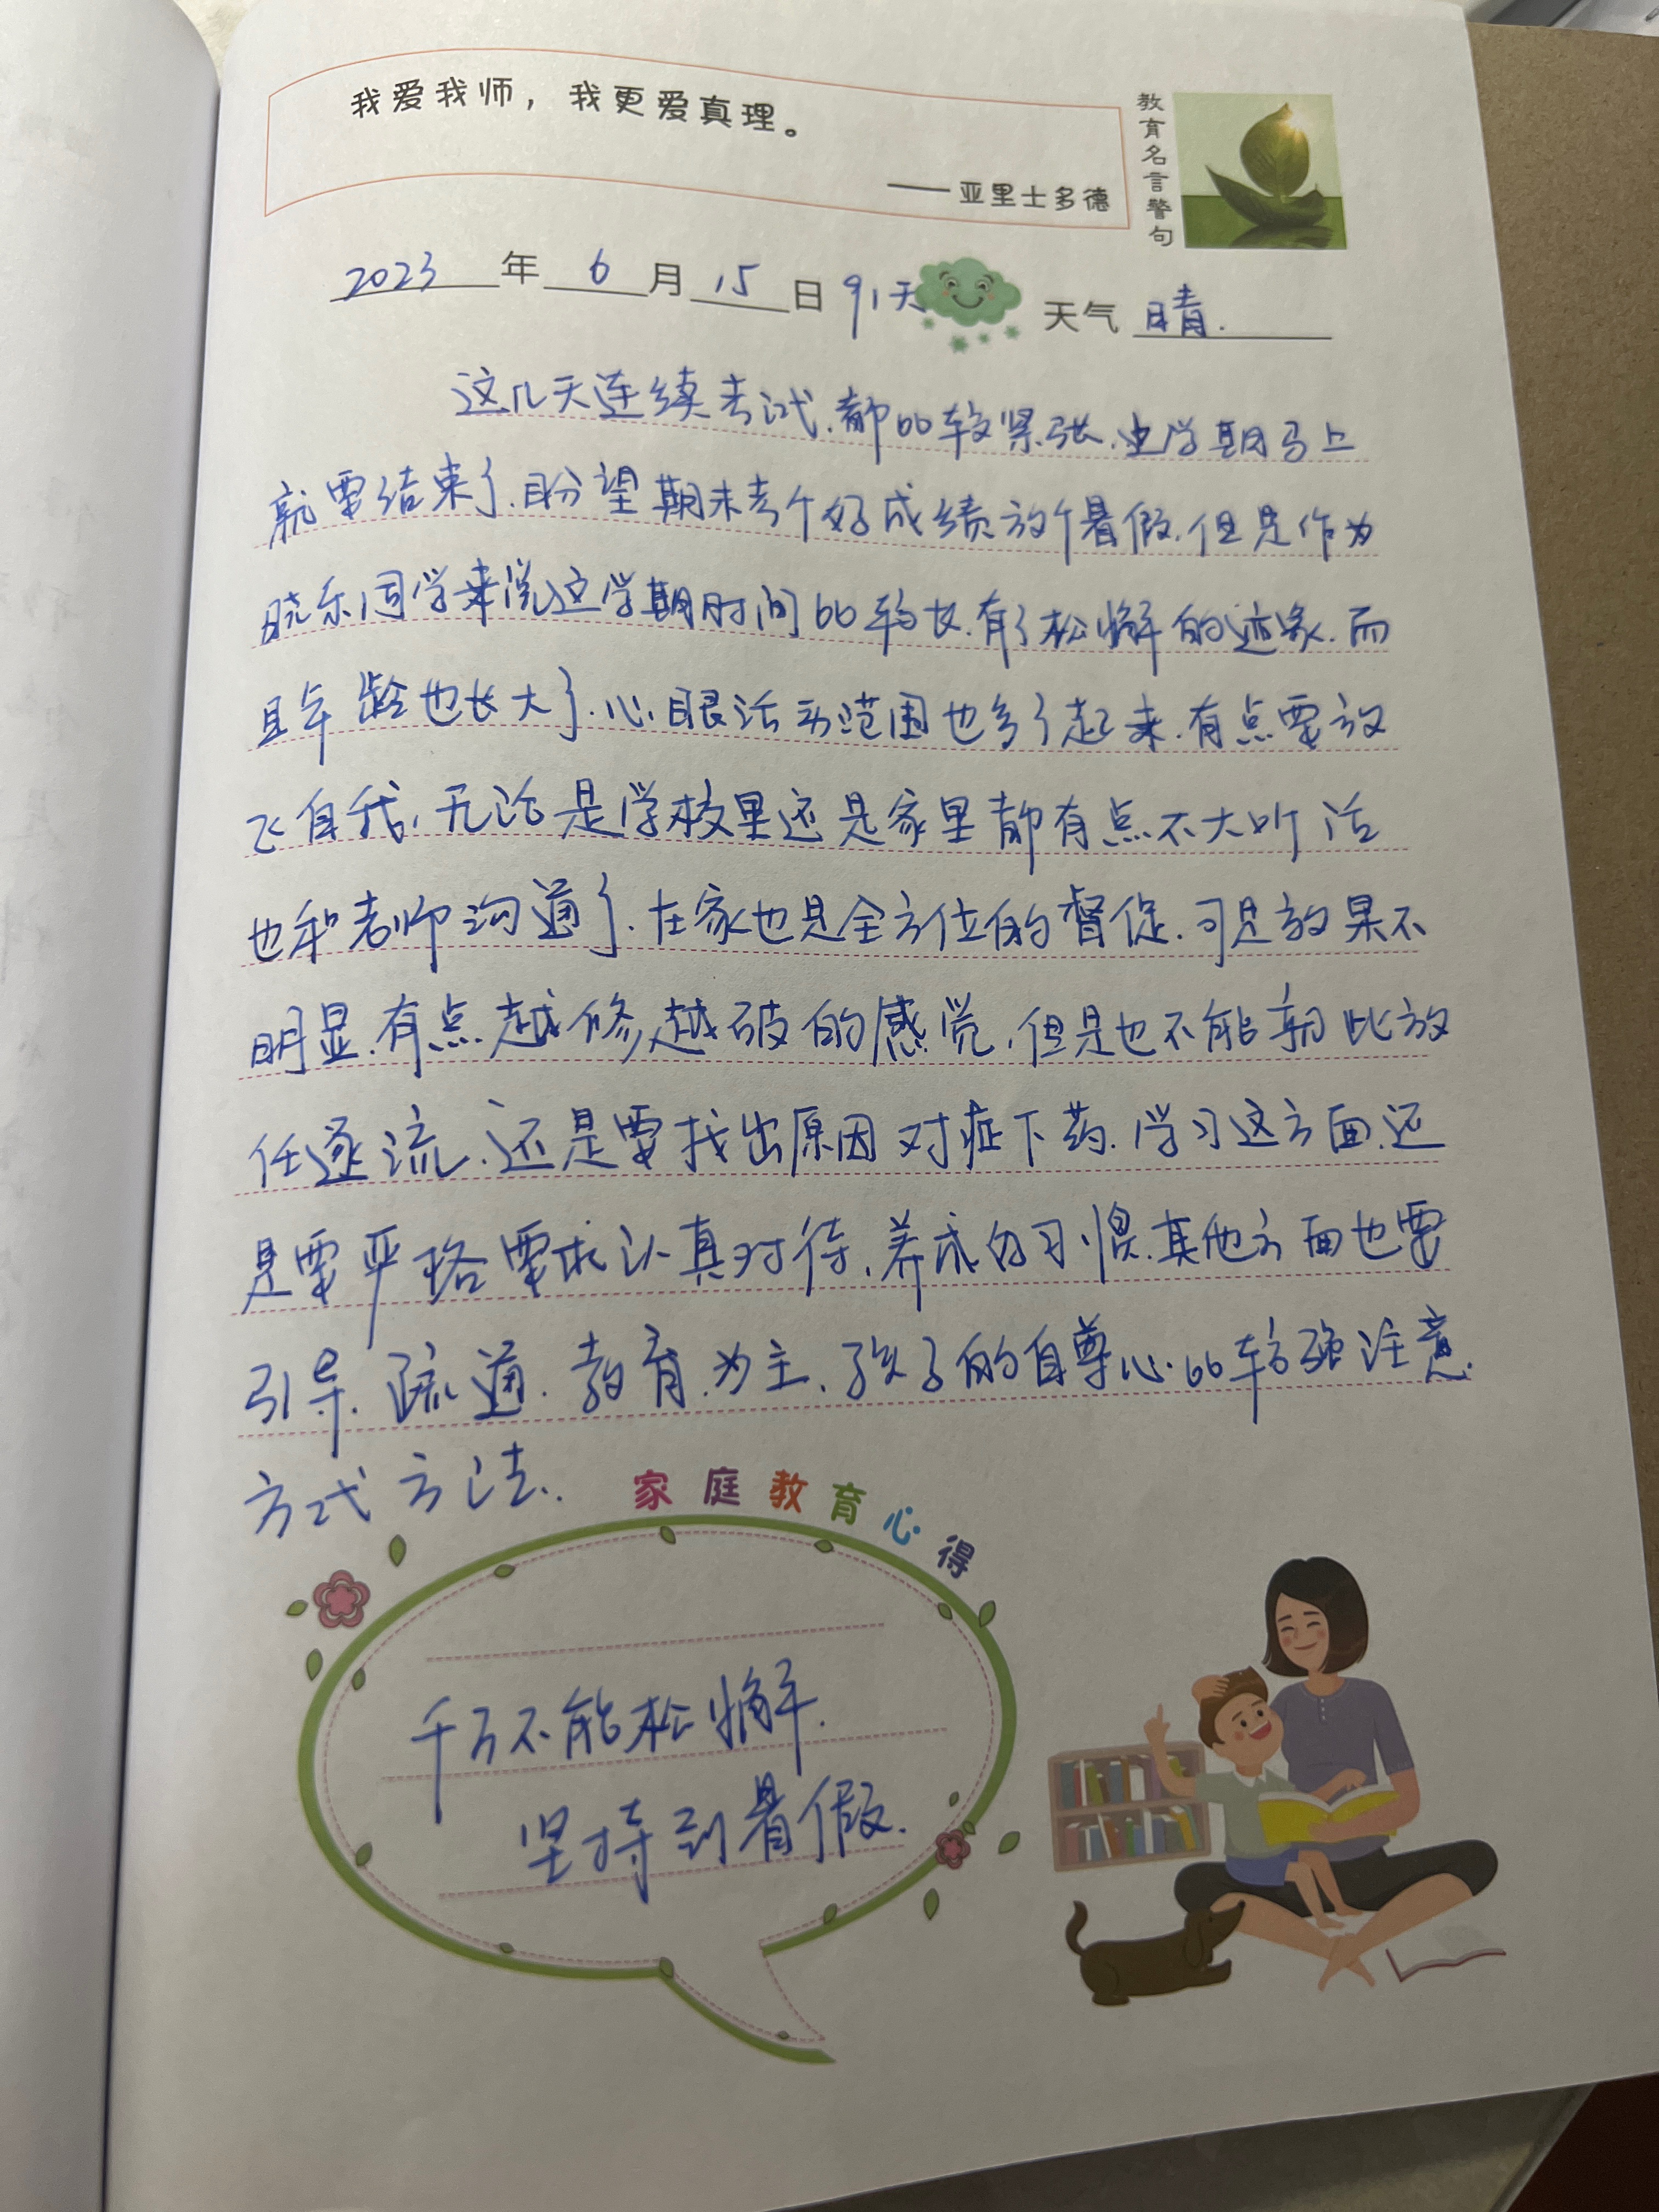 我爱我师，我更爱真理。
——亚里士多德
教育名言警句
2023年6月15日 91天 天气 晴.
这几天连续考试.都比较紧张.也学期马上
就要结束了.盼望期末考个好成绩放个暑假.但是作为
晓东同学来说这学期时间比较长.有了松懈的迹象.而
且年龄也长大了.心眼活动范围也多了起来.有点要放
飞自我,无论是学校里还是家里都有点不大听话
也和老师沟通了.在家也是全方位的督促.可是效果不
明显.有点越修越破的感觉,但是也不能就此放
任逐流.还是要找出原因对症下药.学习这方面还
是要严格要求认真对待,养成的习惯.其他方面也要
引导.疏通.教育.为主.孩子的自尊心比较强注意
方式方法..
家庭教育心得
千万不能松懈.
坚持到暑假.